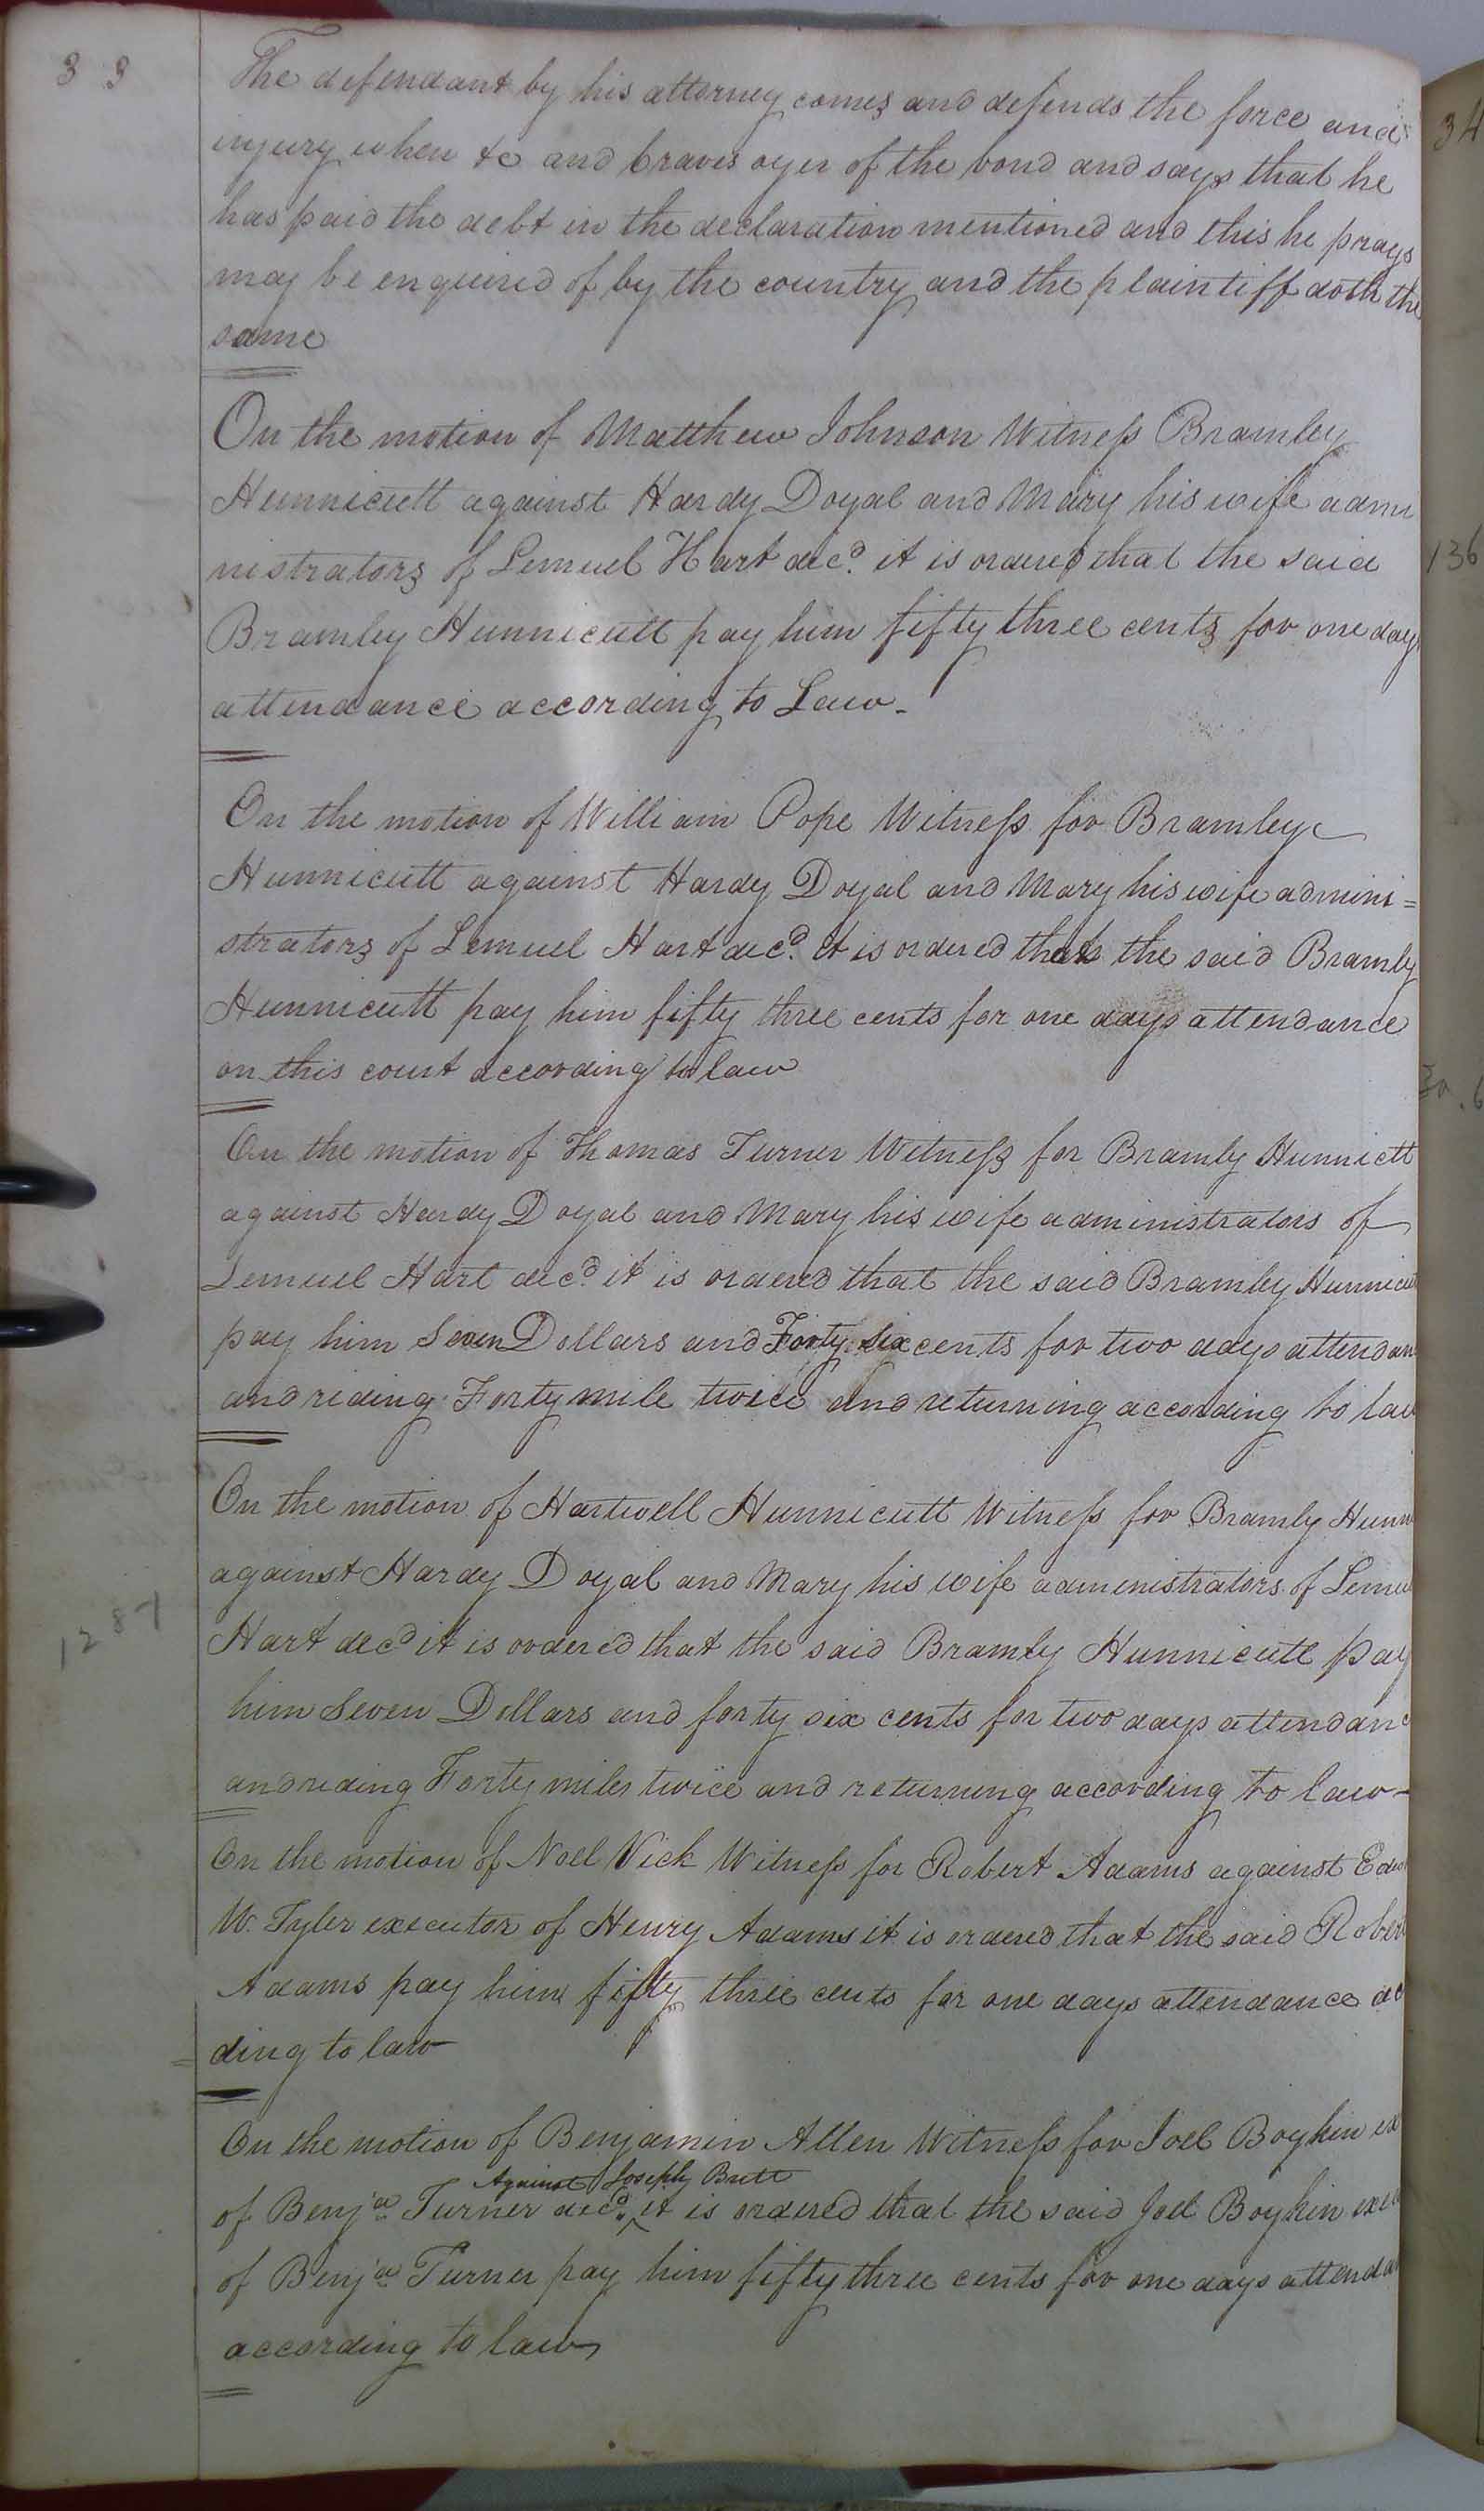 33
The defendant by his attorney comes and defends the force and
injury when &c and craves oyer of the bond and says that he
has paid the debt in the declaration mentioned and this he prays
may be enquired of by the country and the plaintiff doth the
same
On the motion of Matthew Johnson Witness Bramley
Hunnicutt against Hardy Doyal and Mary his wife admi
nistrators of Lemuel Hart decd. it is ordered that the said
Bramley Hunnicutt pay him fifty three cents for one days
attendance according to Law.
On the motion of William Pope Witness for Bramley
Hunnicutt against Hardy Doyal and Mary his wife admini=
strators of Lemuel Hart decd. it is ordered that the said Bramly
Hunnicutt pay him fifty three cents for one days attendance
on this court according to law
On the motion of Thomas Turner Witness for Bramly Hunnictt
against Hardy Doyal and Mary his wife administrators of
Lemuel Hart decd. it is ordered that the said Bramley Hunnicut
pay him Seven Dollars and Forty six cents for two days attendan
and riding Forty mile twice and returning according to law
On the motion of Hartwell Hunnicutt Witness for Bramly Hunni
against Hardy Doyal and Mary his wife administrators of Lemu
Hart decd it is ordered that the said Bramly Hunnicutt pay
him Seven Dollars and forty six cents for two days attendanc
and riding Forty miles twice and returning according to law
On the motion of Noel Vick Witness for Robert Adams against Edw
W. Tyler executor of Henry Adams it is ordered that the said Robert
Adams pay him fifty three cents for one days attendance ac
ding to law
On the motion of Benjamin Atten Witness for Joel Boykin ex
Against Joseph Britt
of Benja Turner decd. it is ordered that the said Joel Boykin exec
of Benja Turner pay him fifty three cents for one days attendan
according to law
1287
34
136